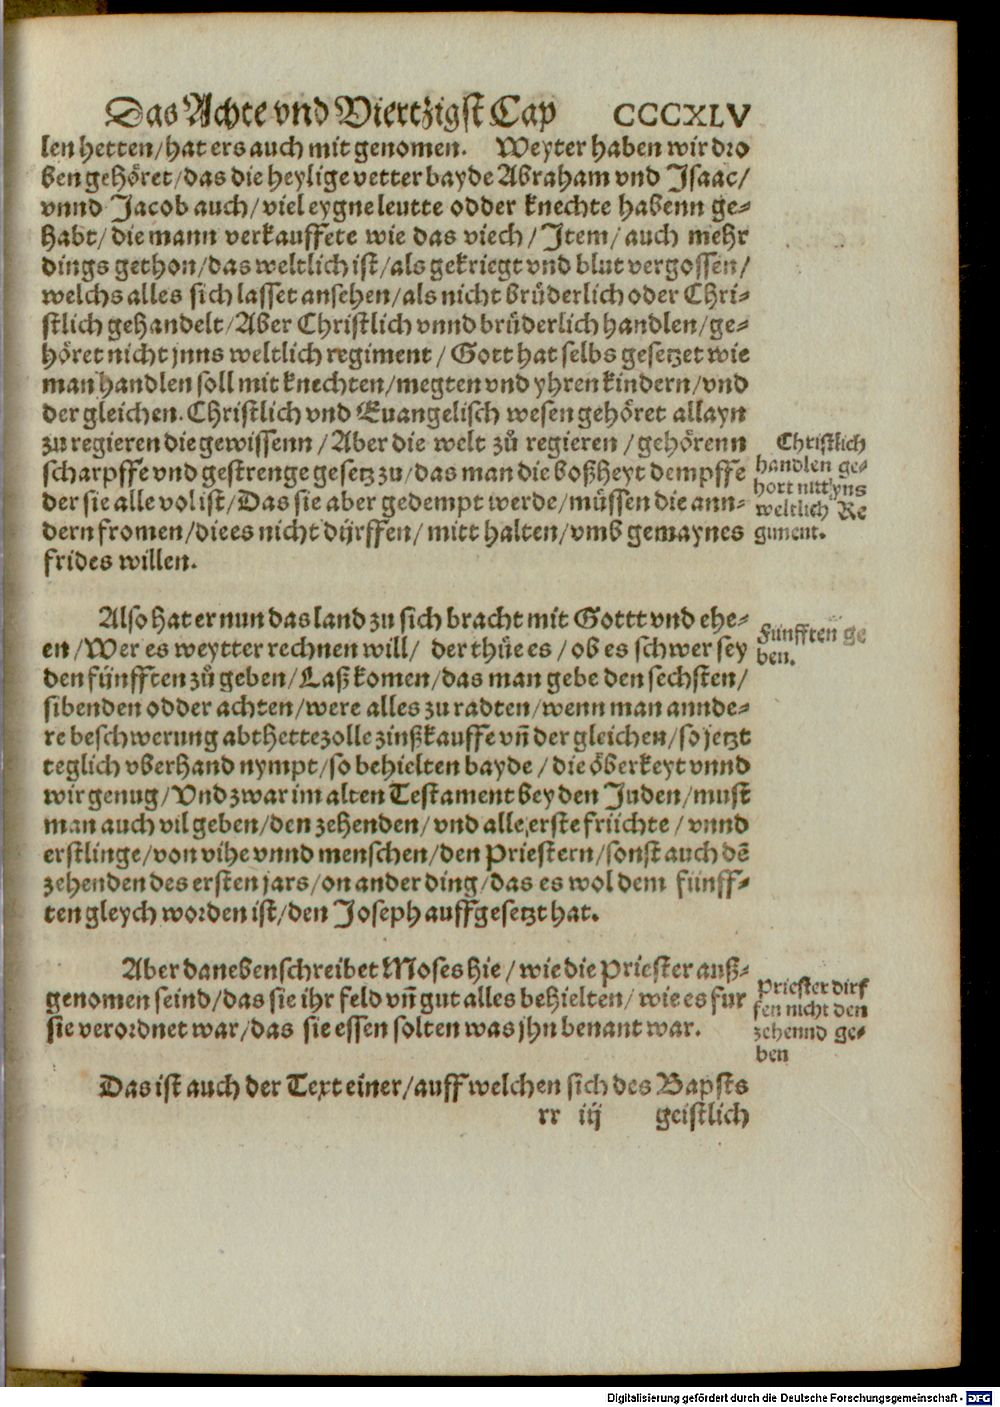 Das Achte vnd Viertzigst Cap CCCXLV
len hetten/hat ers auch mit genomen. Weyter haben wir dro
ben gehöret/das die heylige vetter bayde Abraham vnd Isaac/
vnnd Jacob auch/viel eygne leutte odder knechte habenn ge-
habt/die mann verkauffete wie das viech/Item/auch mehr
dings gethon/das weltlich ist/als gekriegt vnd blut vergossen/
welchs alles sich lasset ansehen/als nicht brüderlich oder Chri-
stlich gehandelt/Aber Christlich vnnd brüderlich handlen/ge-
höret nicht jnns weltlich regiment/Gott hat selbs gesetzet wie
man handlen soll mit knechten/megten vnd yhren kindern/vnd
der gleichen. Christlich vnd Euangelisch wesen gehöret allayn
zu regieren die gewissenn/Aber die welt zů regieren/gehörenn
scharpffe vnd gestrenge gesetz zu/das man die boßheyt dempffe
der sie alle vol ist/Das sie aber gedempt werde/müssen die ann-
dern fromen/die es nicht dürffen/mitt halten/vmb gemaynes
frides willen.
Christlich
handlen ge-
hort nitt yns
weltlich Re
giment.
Also hat er nun das land zu sich bracht mit Gottt vnd ehe-
en/Wer es weytter rechnen will/ der thüe es/ob es schwer sey
den fünfften zů geben/Laß komen/das man gebe den sechsten/
sibenden odder achten/were alles zu radten/wenn man annde-
re beschwerung abthette zolle zinßkauffe vn̄ der gleichen/so jetzt
teglich vberhand nympt/so behielten bayde/die öberkeyt vnnd
wir genug/Vnd zwar im alten Testament bey den Juden/must
man auch vil geben/den zehenden/vnd alle erste früchte/vnnd
erstlinge/von vihe vnnd menschen/den Priestern/sonst auch dē
zehenden des ersten jars/on ander ding/das es wol dem fünff-
ten gleych worden ist/den Joseph auffgesetzt hat.
Fünfften ge
ben.
Aber daneben schreibet Moses hie/wie die Priester auß-
genomen seind/das sie ihr feld vn̄ gut alles behielten/wie es fur
sie verordnet war/das sie essen solten was jhn benant war.
Priester dirf
fen nicht den
zehennd ge-
ben
Das ist auch der Text einer/auff welchen sich des Bapsts
rr iij geistlich
Digitalisierung gefördert durch die Deutsche Forschungsgemeinschaft - DFG